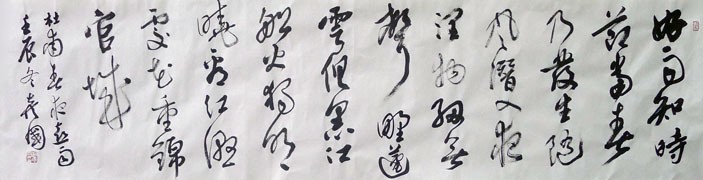 好雨知時
節當春
乃發生隨
風潛入夜
潤物細無
聲野徑
雲俱黑江
船火獨明
曉看紅濕
處花重錦
官城
杜甫春夜喜雨
壬辰冬國